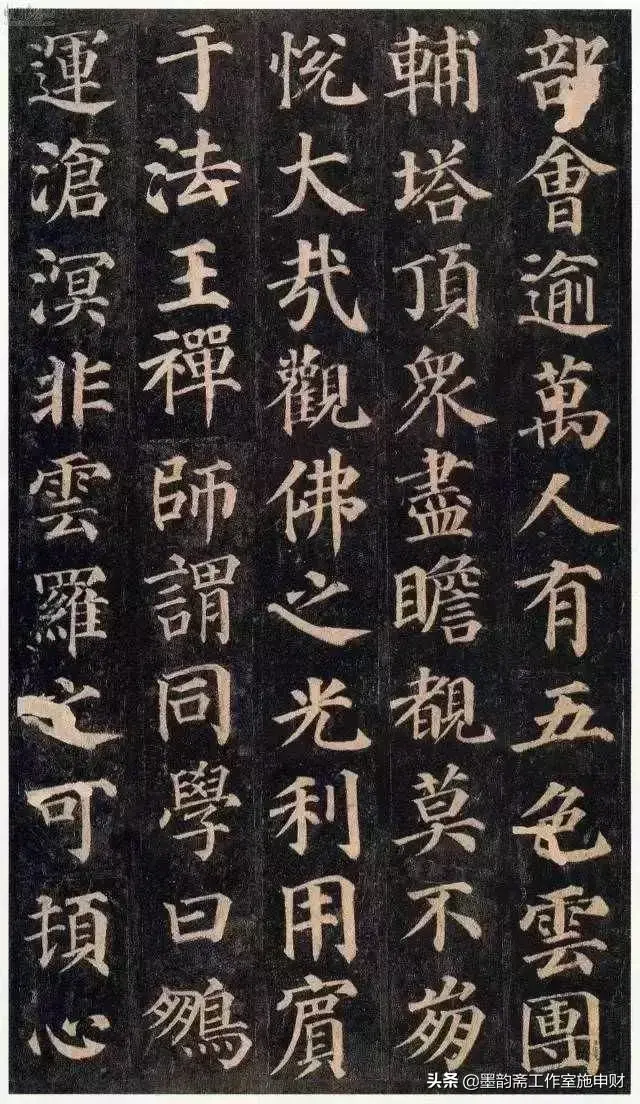 部會逾萬人有五色雲團
輔塔頂衆盡瞻覩莫不崩
悅大哉觀佛之光利用賓
于法王禪師謂同學曰鵬
運滄溟非雲羅之可頓心
头条 @墨韵斋工作室施申财